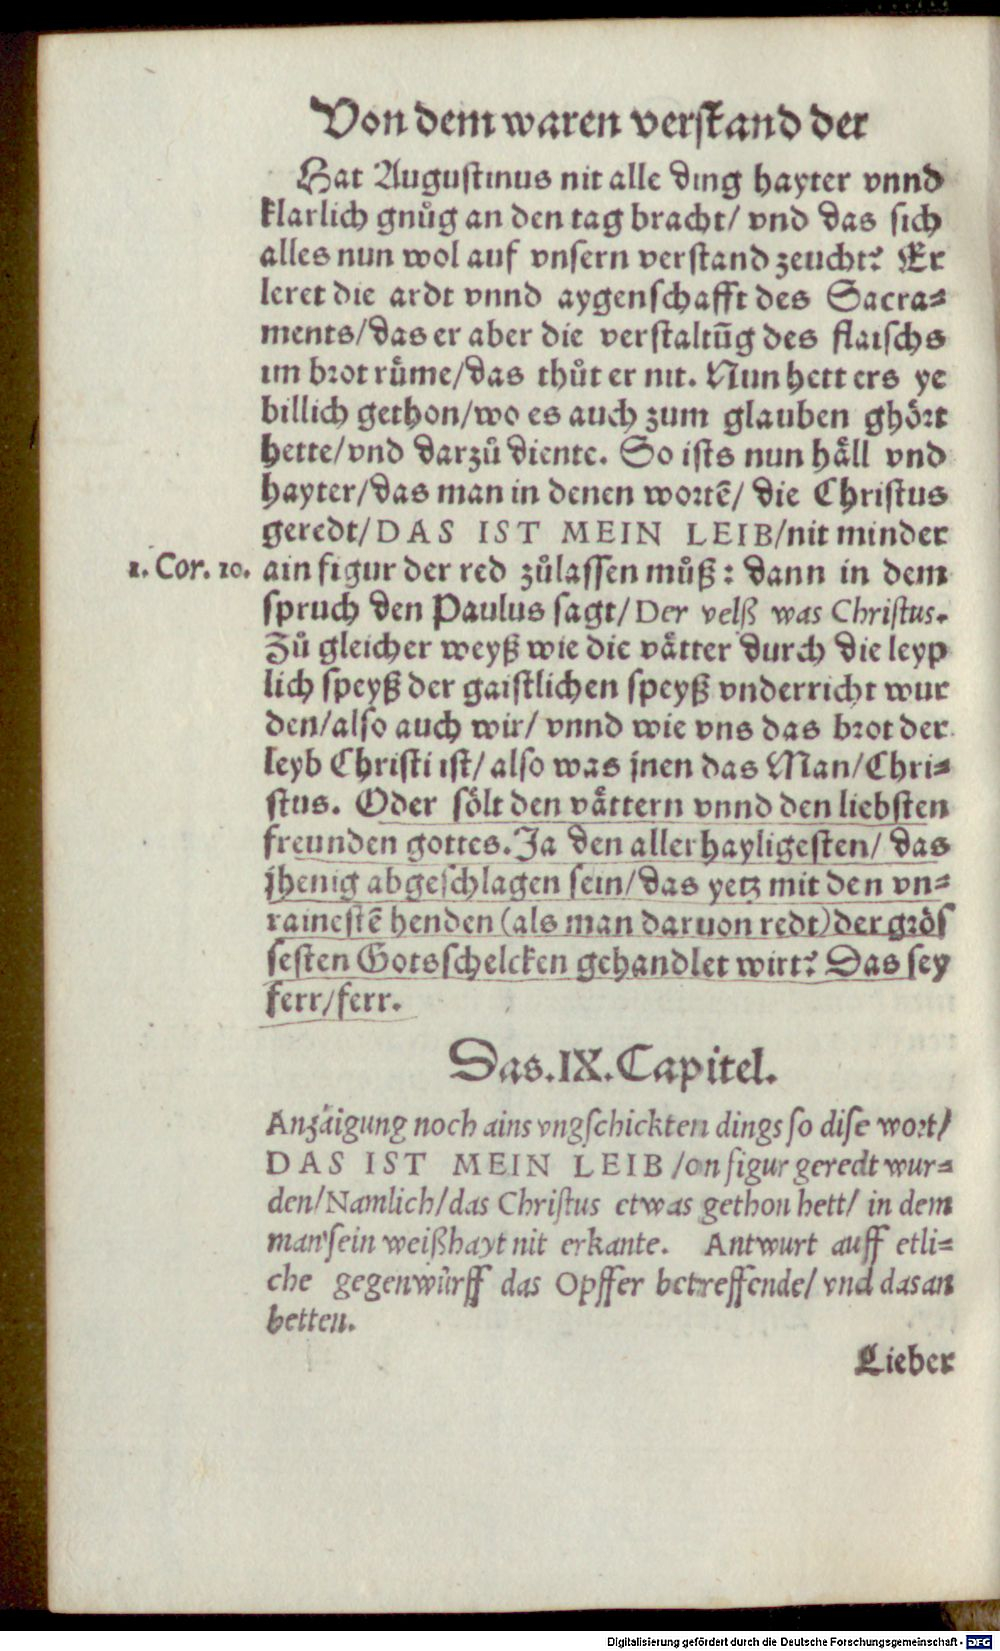 Von dem waren verstand der
Hat Augustinus nit alle ding hayter vnnd
klarlich gnůg an den tag bracht/ vnd das sich
alles nun wol auf vnsern verstand zeucht? Er
leret die ardt vnnd aygenschafft des Sacra-
ments/das er aber die verstaltūg des flaischs
im brot růme/das thůt er nit. Nun hett ers ye
billich gethon/wo es auch zum glauben ghört
hette/vnd darzů diente. So ists nun häll vnd
hayter/das man in denen wortē/ die Christus
geredt/DAS IST MEIN LEIB/nit minder
1. Cor. 10. ain figur der red zůlassen můß: dann in dem
spruch den Paulus sagt/Der velß was Christus.
Zů gleicher weyß wie die vätter durch die leyp
lich speyß der gaistlichen speyß vnderricht wur
den/also auch wir/ vnnd wie vns das brot der
leyb Christi ist/ also was jnen das Man/Chri-
stus. Oder sölt den vättern vnnd den liebsten
freunden gottes. Ja den allerhayligesten/ das
jhenig abgeschlagen sein/das yetz mit den vn-
rainestē henden (als man daruon redt) der grös
sesten Gotsschelcken gehandlet wirt? Das sey
ferr/ferr.
Das.IX.Capitel.
Anzäigung noch ains vngschickten dings so dise wort/
DAS IST MEIN LEIB/on figur geredt wur-
den/Namlich/das Christus etwas gethon hett/ in dem
man sein weißhayt nit erkante. Antwurt auff etli-
che gegenwürff das Opffer betreffende/ vnd das an
betten.
Lieber
Digitalisierung gefördert durch die Deutsche Forschungsgemeinschaft - DFG